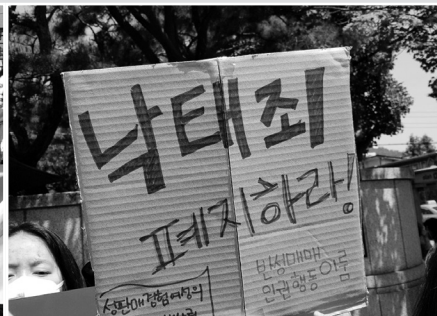 낙태죄
폐지하라!
반성매매
인권행동 이룸
성판매경험여성의